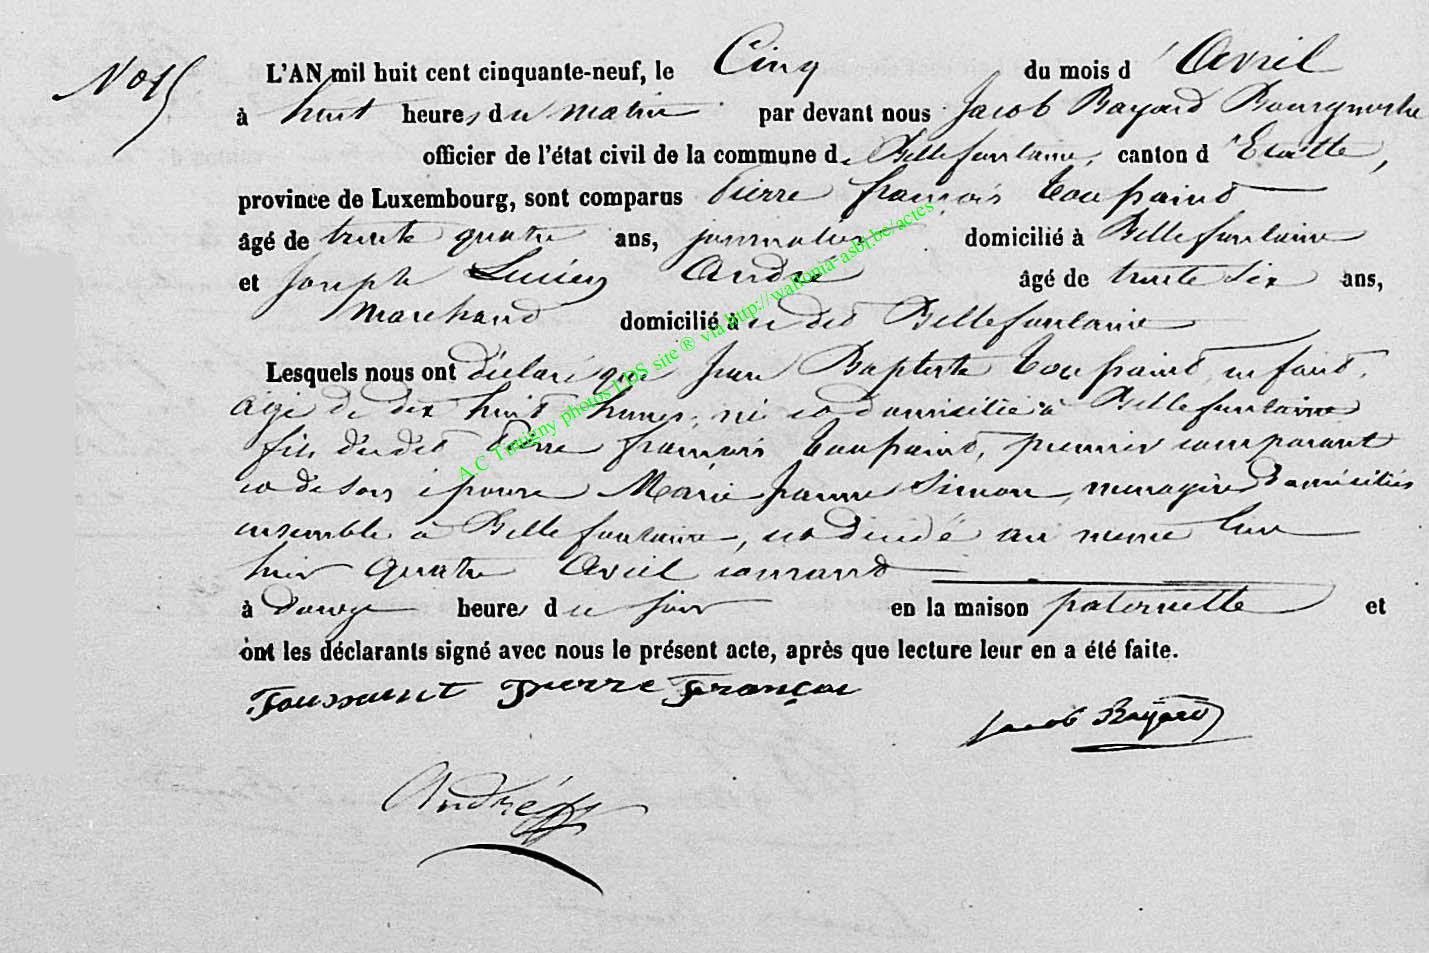 N° 15
L'AN mil huit cent cinquante-neuf, le Cinq du mois d'Avril
à huit heures du matin par devant nous Jacob Bayard Bourgmestre
officier de l'état civil de la commune de Bellefontaine, canton d'Etalle,
province de Luxembourg, sont comparus Pierre françois Toussaint
âgé de trente quatre ans, journalier domicilié à Bellefontaine
et Joseph Lucien André âgé de trente six ans,
Marchand domicilié à u dit Bellefontaine
Lesquels nous ont déclaré que Jean Baptiste Toussaint, enfant,
âgé de dix huit heures, né et domicilié à Bellefontaine
fils du dit Pierre françois Toussaint, premier comparant
et de son épouse Marie Jeanne Simon, menagère domiciliés
ensemble à Bellefontaine, est décédé au même lieu
hier quatre Avril courant
à douze heures du jour en la maison paternelle et
ont les déclarants signé avec nous le présent acte, après que lecture leur en a été faite.
Toussaint Pierre François
Jacob Bayard
André
A.C Tintigny photos LDS site ® via http://wallonia-asbl.be/actes